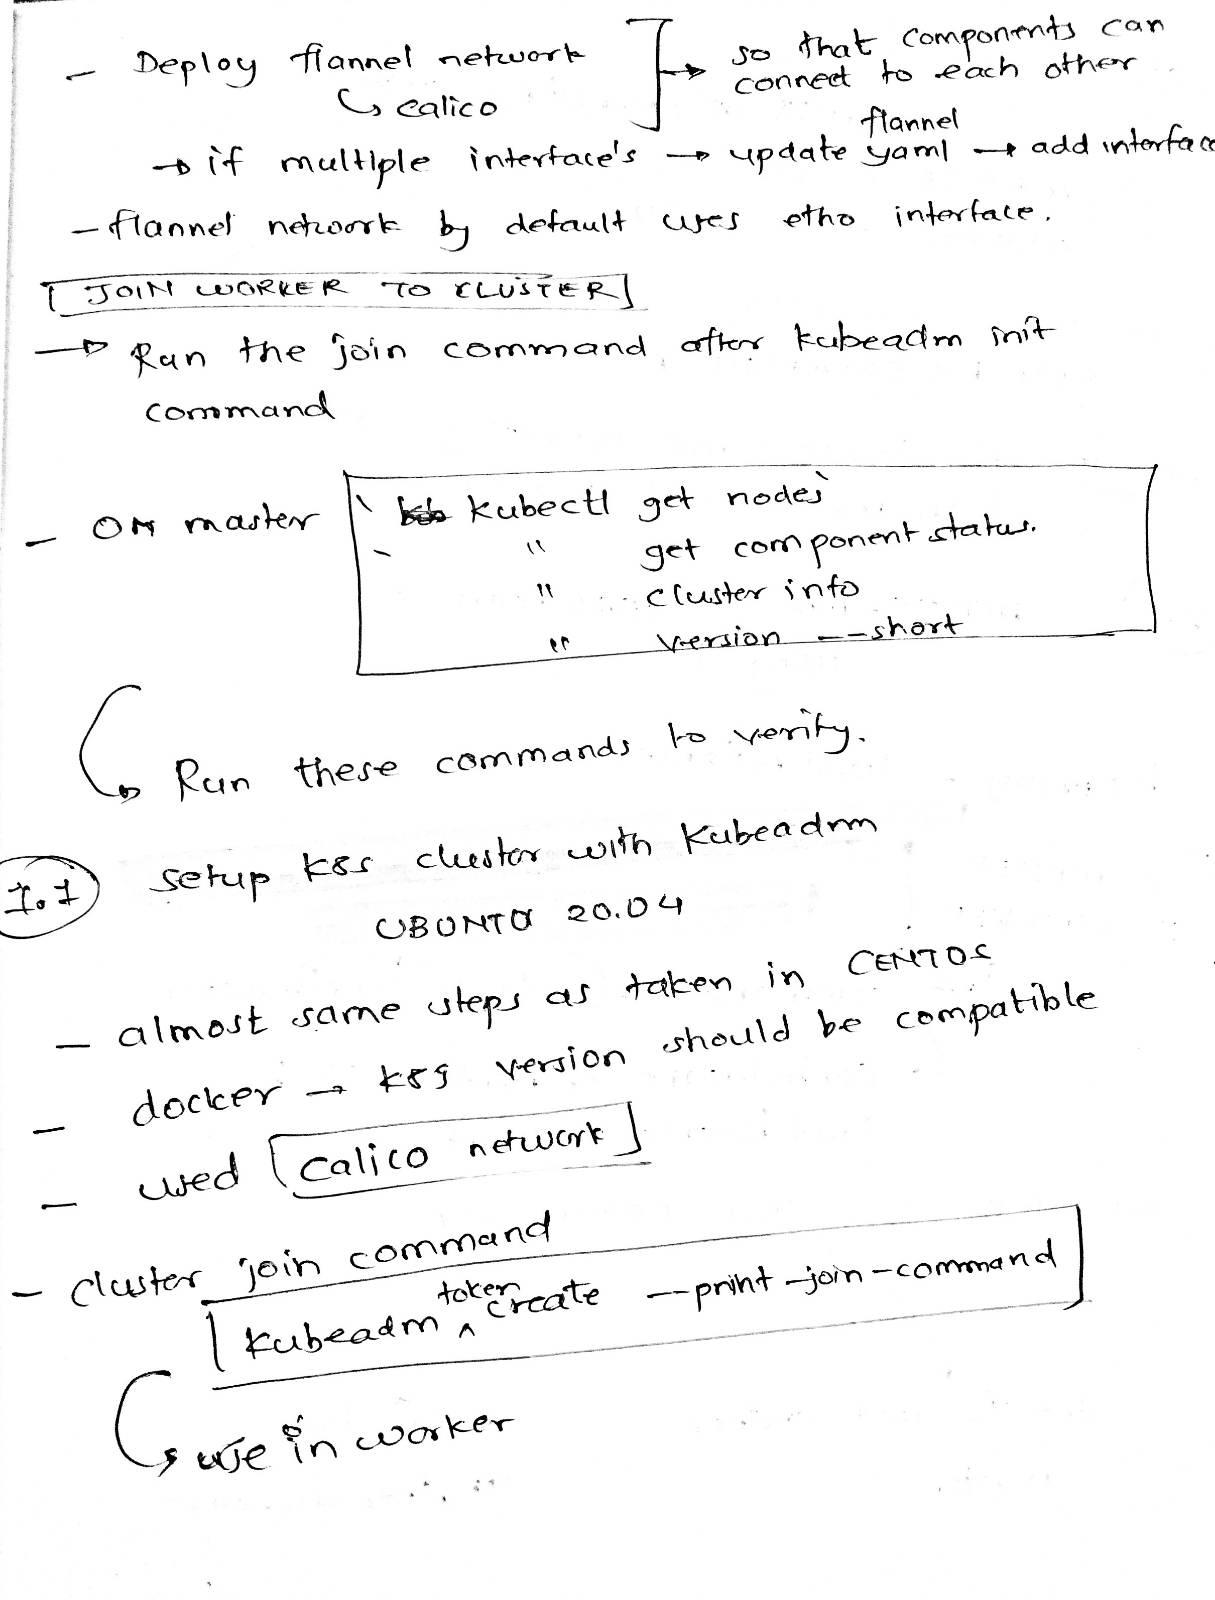 - Deploy flannel network → so that components can
↳ calico connect to each other
→ if multiple interface's → update flannel yaml → add interface
- flannel network by default uses etho interface.
JOIN WORKER TO CLUSTER
→ Run the join command after kubeadm init
command
- ON master kubectl get nodes
" get component status.
" cluster info
" version --short
↳ Run these commands to verify.
1.1 setup k8s cluster with kubeadm
UBUNTU 20.04
- almost same steps as taken in CENTOS
- docker → k8s version should be compatible
- used calico network
- cluster join command
kubeadm token create --print-join-command
↳ use in worker